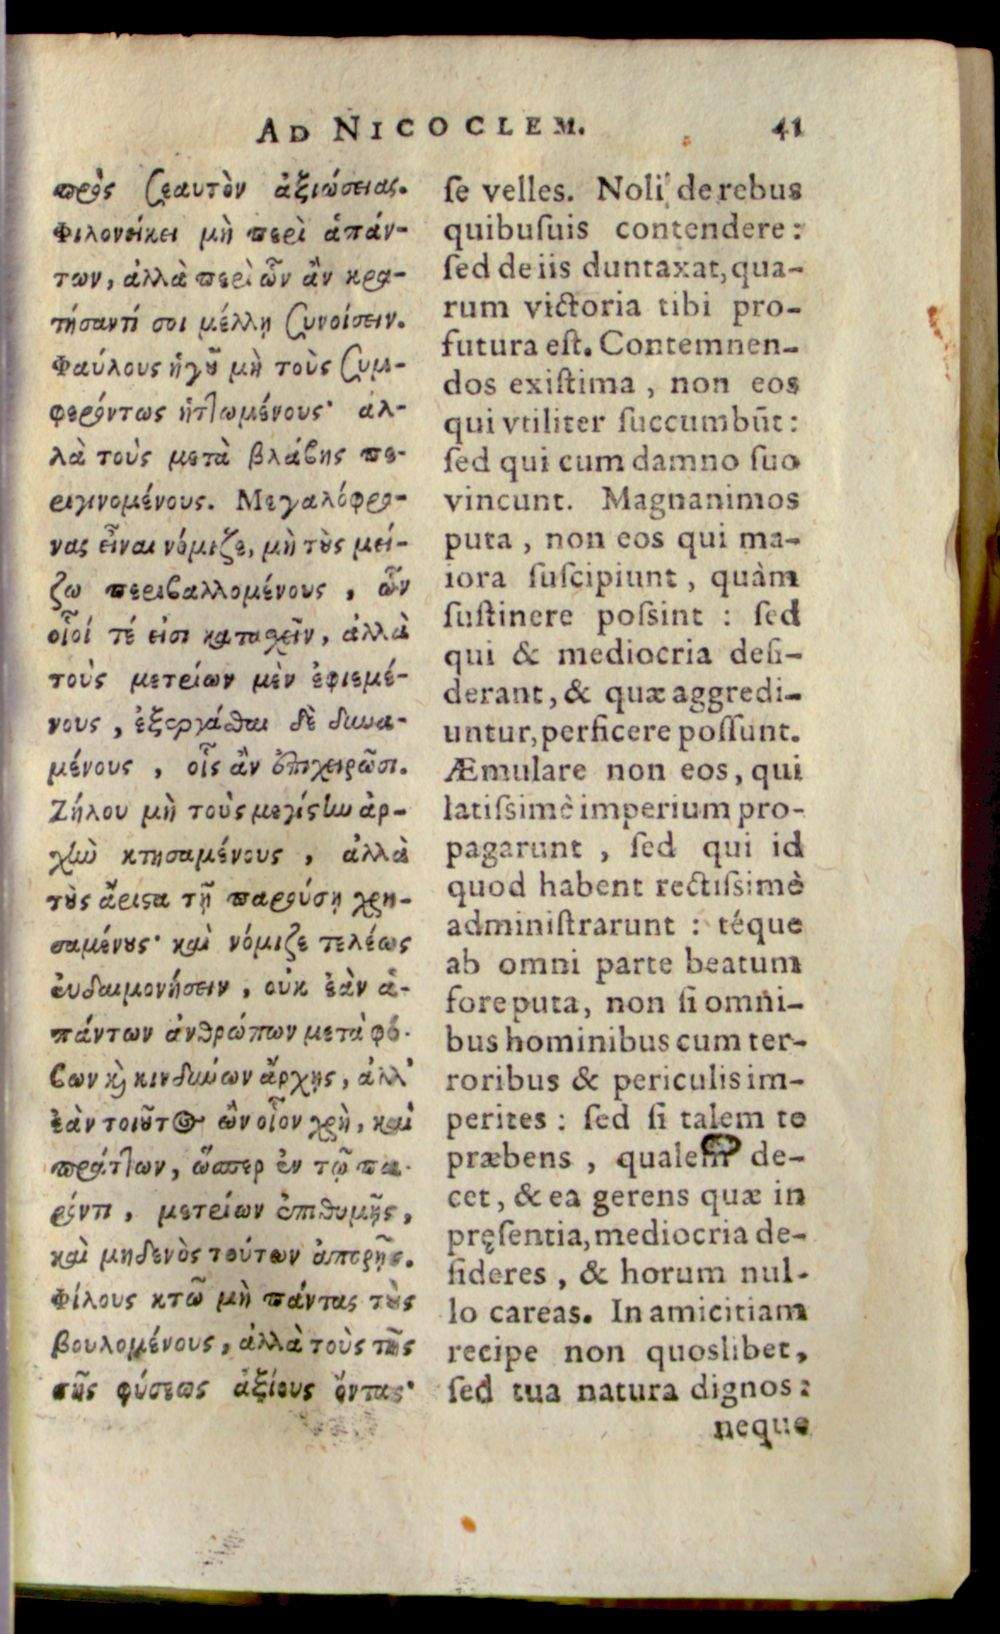 AD NICOCLEM. 41
πρὸς σεαυτὸν ἀξιώσειας.
Φιλονείκει μὴ περὶ ἁπάν-
των, ἀλλὰ περὶ ὧν ἂν κρα-
τήσαντί σοι μέλλῃ συνοίσειν.
Φαύλους ἡγοῦ μὴ τοὺς συμ-
φερόντως ἡττωμένους· ἀλ-
λὰ τοὺς μετὰ βλάβης πε-
ριγινομένους. Μεγαλόφρο-
νας εἶναι νόμιζε, μὴ τοὺς μεί-
ζω περιβαλλομένους, ὧν
οἷοί τέ εἰσι κατασχεῖν, ἀλλὰ
τοὺς μετρίων μὲν ἐφιεμέ-
νους, ἐξεργάσθαι δὲ δυνα-
μένους, οἷς ἂν ἐπιχειρῶσι.
Ζήλου μὴ τοὺς μεγίστην ἀρ-
χὴν κτησαμένους, ἀλλὰ
τοὺς ἄριστα τῇ παρούσῃ χρη-
σαμένους· καὶ νόμιζε τελέως
εὐδαιμονήσειν, οὐκ ἐὰν ἁ-
πάντων ἀνθρώπων μετὰ φό-
βων καὶ κινδύνων ἄρχῃς, ἀλλ'
ἐὰν τοιοῦτος ὢν οἷον χρὴ, καὶ
πράττων, ὥσπερ ἐν τῷ πα-
ρόντι, μετρίων ἐπιθυμῇς,
καὶ μηδενὸς τούτων ἀπορῇς.
Φίλους κτῶ μὴ πάντας τοὺς
βουλομένους, ἀλλὰ τοὺς τῆς
σῆς φύσεως ἀξίους ὄντας·
se velles. Noli de rebus
quibusuis contendere:
sed de iis duntaxat, qua-
rum victoria tibi pro-
futura est. Contemnen-
dos existima, non eos
qui vtiliter succumbūt:
sed qui cum damno suo
vincunt. Magnanimos
puta, non eos qui ma-
iora suscipiunt, quàm
sustinere possint: sed
qui & mediocria desi-
derant, & quæ aggredi-
untur, perficere possunt.
Æmulare non eos, qui
latissimè imperium pro-
pagarunt, sed qui id
quod habent rectissimè
administrarunt: téque
ab omni parte beatum
fore puta, non si omni-
bus hominibus cum ter-
roribus & periculis im-
perites: sed si talem te
præbens, qualem de-
cet, & ea gerens quæ in
pręsentia, mediocria de-
sideres, & horum nul-
lo careas. In amicitiam
recipe non quoslibet,
sed tua natura dignos:
neque